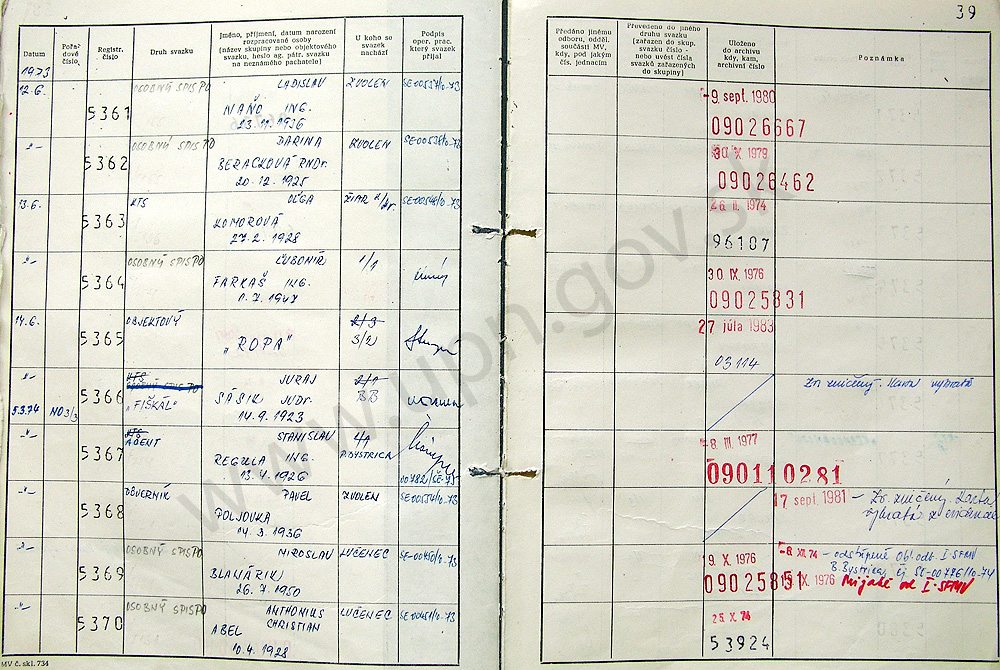 39
Datum
Pořadové číslo
Registr. číslo
Druh svazku
Jméno, příjmení, datum narození rozpracované osoby (název skupiny nebo objektového svazku, heslo ag. pátr. svazku na neznámého pachatele)
U koho se svazek nachází
Podpis oper. prac. který svazek přijal
Předáno jinému odboru, odděl. součásti MV, kdy, pod jakým čís. jednacím
Převedeno do jiného druhu svazku (zařazen do skup. svazku číslo - nebo uvést čísla svazků zařazených do skupiny)
Uloženo do archivu kdy, kam, archivní číslo
Poznámka
1973
12.6. 5361 OSOBNÝ SPIS PO LADISLAV ZVOLEN SE-00537/0-73
NAŇO ING.
23.11.1936
-9. sept. 1980
09026667
-"- 5362 OSOBNÝ SPIS PO DARINA ZVOLEN SE-00538/0-73
BERACKOVÁ RNDr.
20.12.1925
30. X. 1979
09026462
13.6. 5363 KTS OĽGA ŽIAR n/Hr. SE-00548/0-73
KOMOROVÁ
27.2.1928
26. II. 1974
96107
-"- 5364 OSOBNÝ SPIS PO ĽUBOMÍR 1/1
FARKAŠ ING.
1.7.1947
30. IX. 1976
09025831
14.6. 5365 OBJEKTOVÝ 2/3
„ROPA" 3/2
27. júla 1983
03114
-"- 5366 KTS JURAJ 2/1
OSOBNÝ SPIS PO
5.3.74 NO 3/3 „FIŠKÁL" SÁSIK JUDr. BB
14.9.1923
Zv. zničený. Karta vybratá
-"- 5367 KTS
AGENT STANISLAV
REGULA ING. B.BYSTRICA
13.4.1926 00782/SE-75
-8. III. 1977
090110281
-"- 5368 DÔVERNÍK PAVEL ZVOLEN SE-00554/0-73
POLJOVKA
14.3.1936
17. sept. 1981 – Zv. zničený. Karta
vybratá z evidencie
-"- 5369 OSOBNÝ SPIS PO MIROSLAV LUČENEC SE-00450/0-73
BLANÁRIK
26.7.1950
19. X. 1976 -6. XII. 74 – odstúpené Obl. odb. I. SFMV
B. Bystrica, čj SE-00786/0-74
09025851 19. X. 1976 Prijaté od I. SFMV
-"- 5370 OSOBNÝ SPIS PO ANTHONIUS LUČENEC SE-00451/0-73
CHRISTIAN
ABEL
10.4.1928
25. X. 74
53924
MV č. skl. 734
www.upn.gov.sk